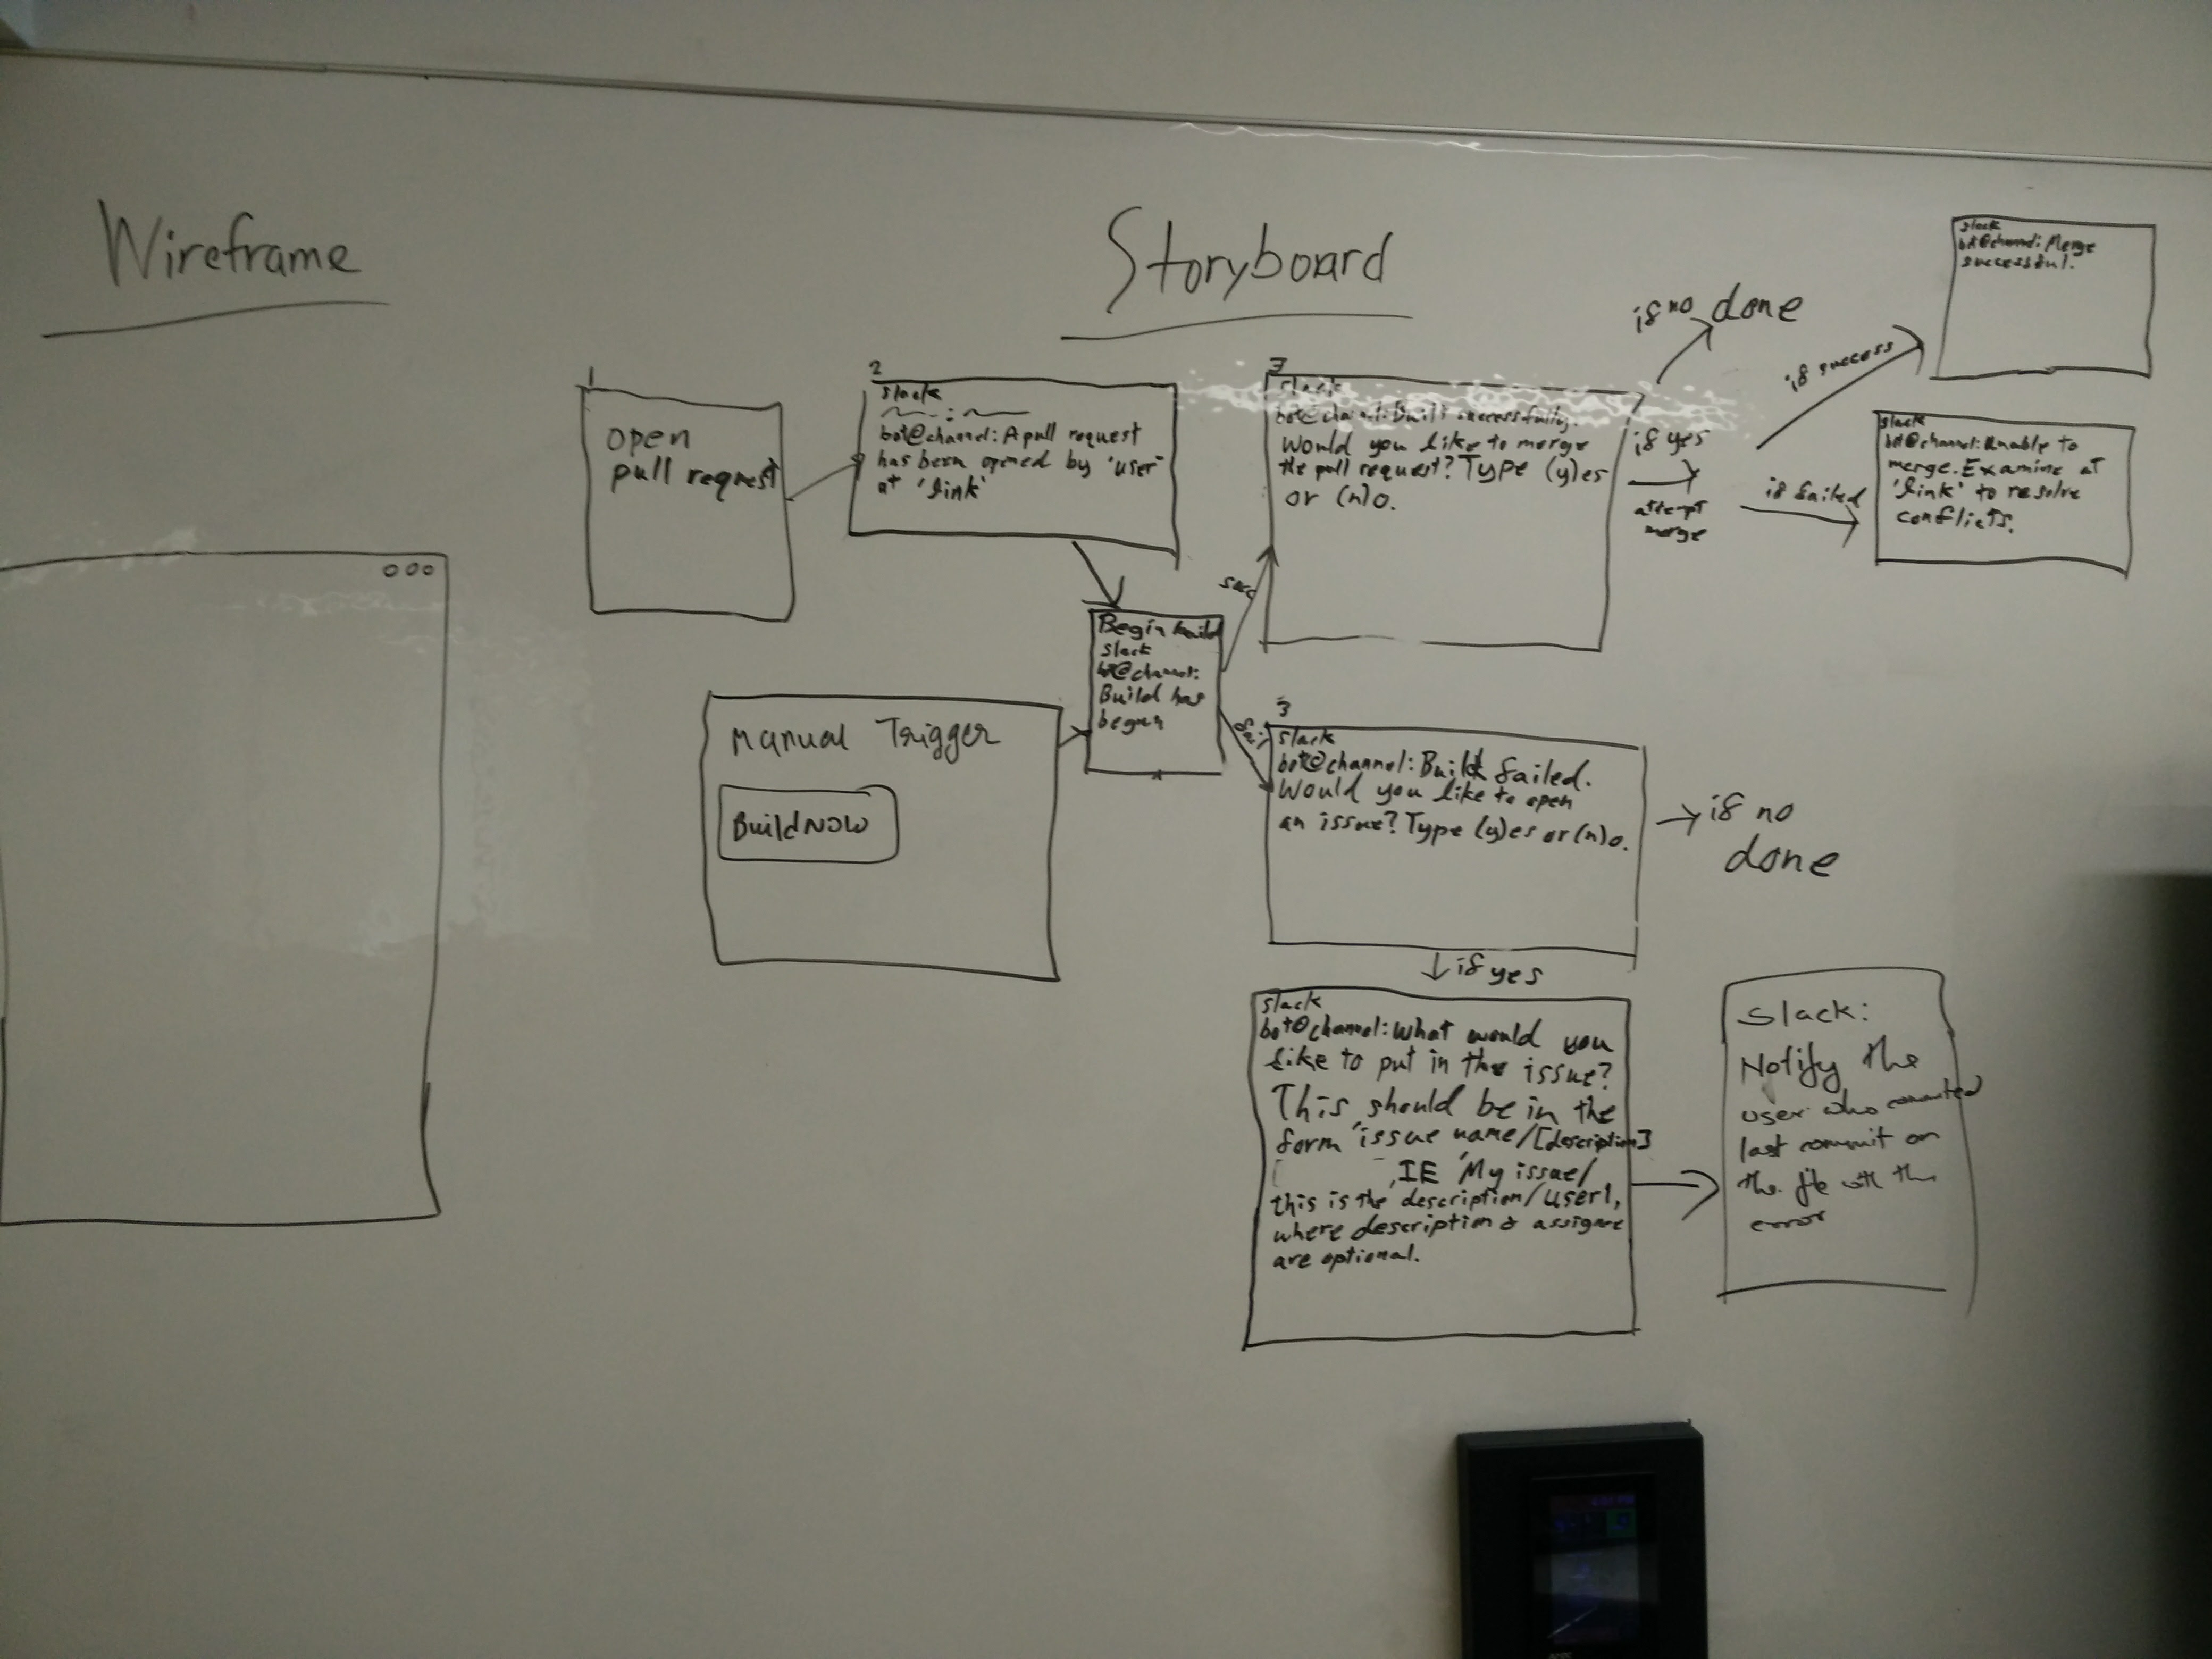 Wireframe
Storyboard
1
open
pull request
2
slack
bot@channel: A pull request
has been opened by 'user'
at 'link'
Begin build
slack
bot@channel:
Build has
begun
Manual Trigger
Build Now
succ
fail
3
slack
bot@channel: Built successfully.
Would you like to merge
the pull request? Type (y)es
or (n)o.
if no done
if yes
attempt
merge
if success
slack
bot@channel: Merge
successful.
if failed
slack
bot@channel: Unable to
merge. Examine at
'link' to resolve
conflicts.
3
slack
bot@channel: Build failed.
Would you like to open
an issue? Type (y)es or (n)o.
if no
done
if yes
slack
bot@channel: What would you
like to put in the issue?
This should be in the
form 'issue name/[description]
, IE 'My issue/
this is the description/user1,
where description & assignee
are optional.
Slack:
Notify the
user who commited
last commit on
the file with the
error